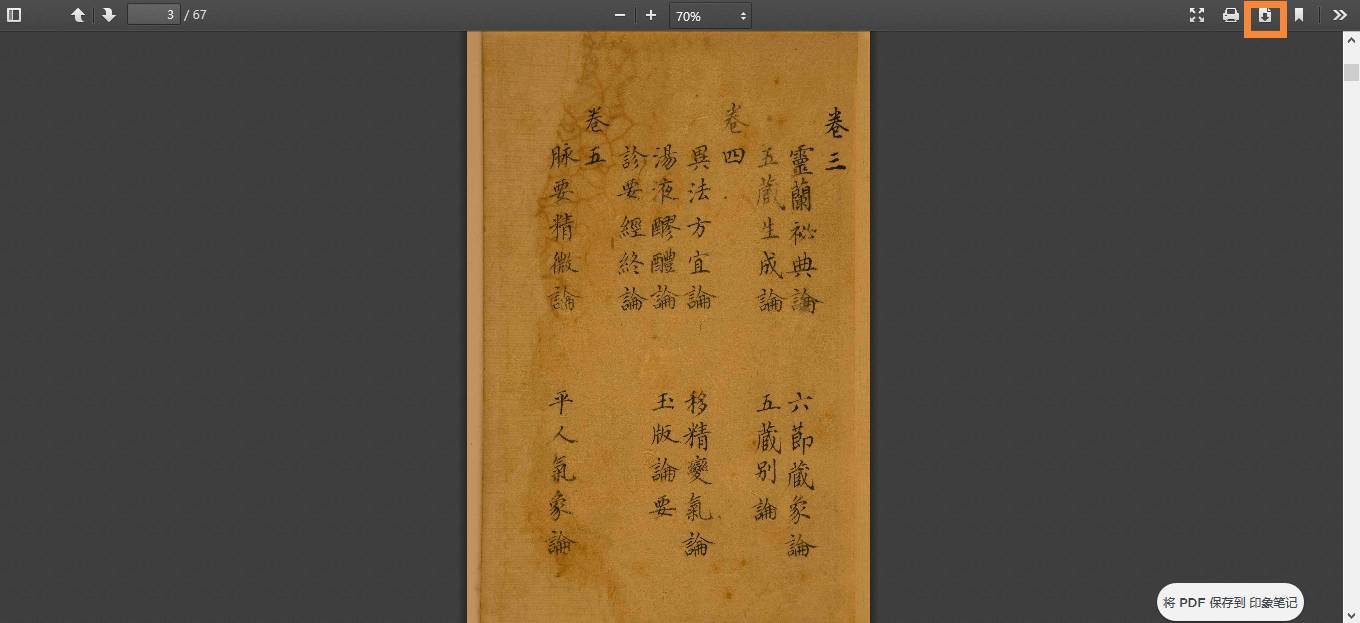 3 / 67
70%
卷三
靈蘭祕典論 六節藏象論
五藏生成論 五藏別論
卷四
異法方宜論 移精變氣論
湯液醪醴論 玉版論要
診要經終論
卷五
脉要精微論 平人氣象論
将 PDF 保存到 印象笔记